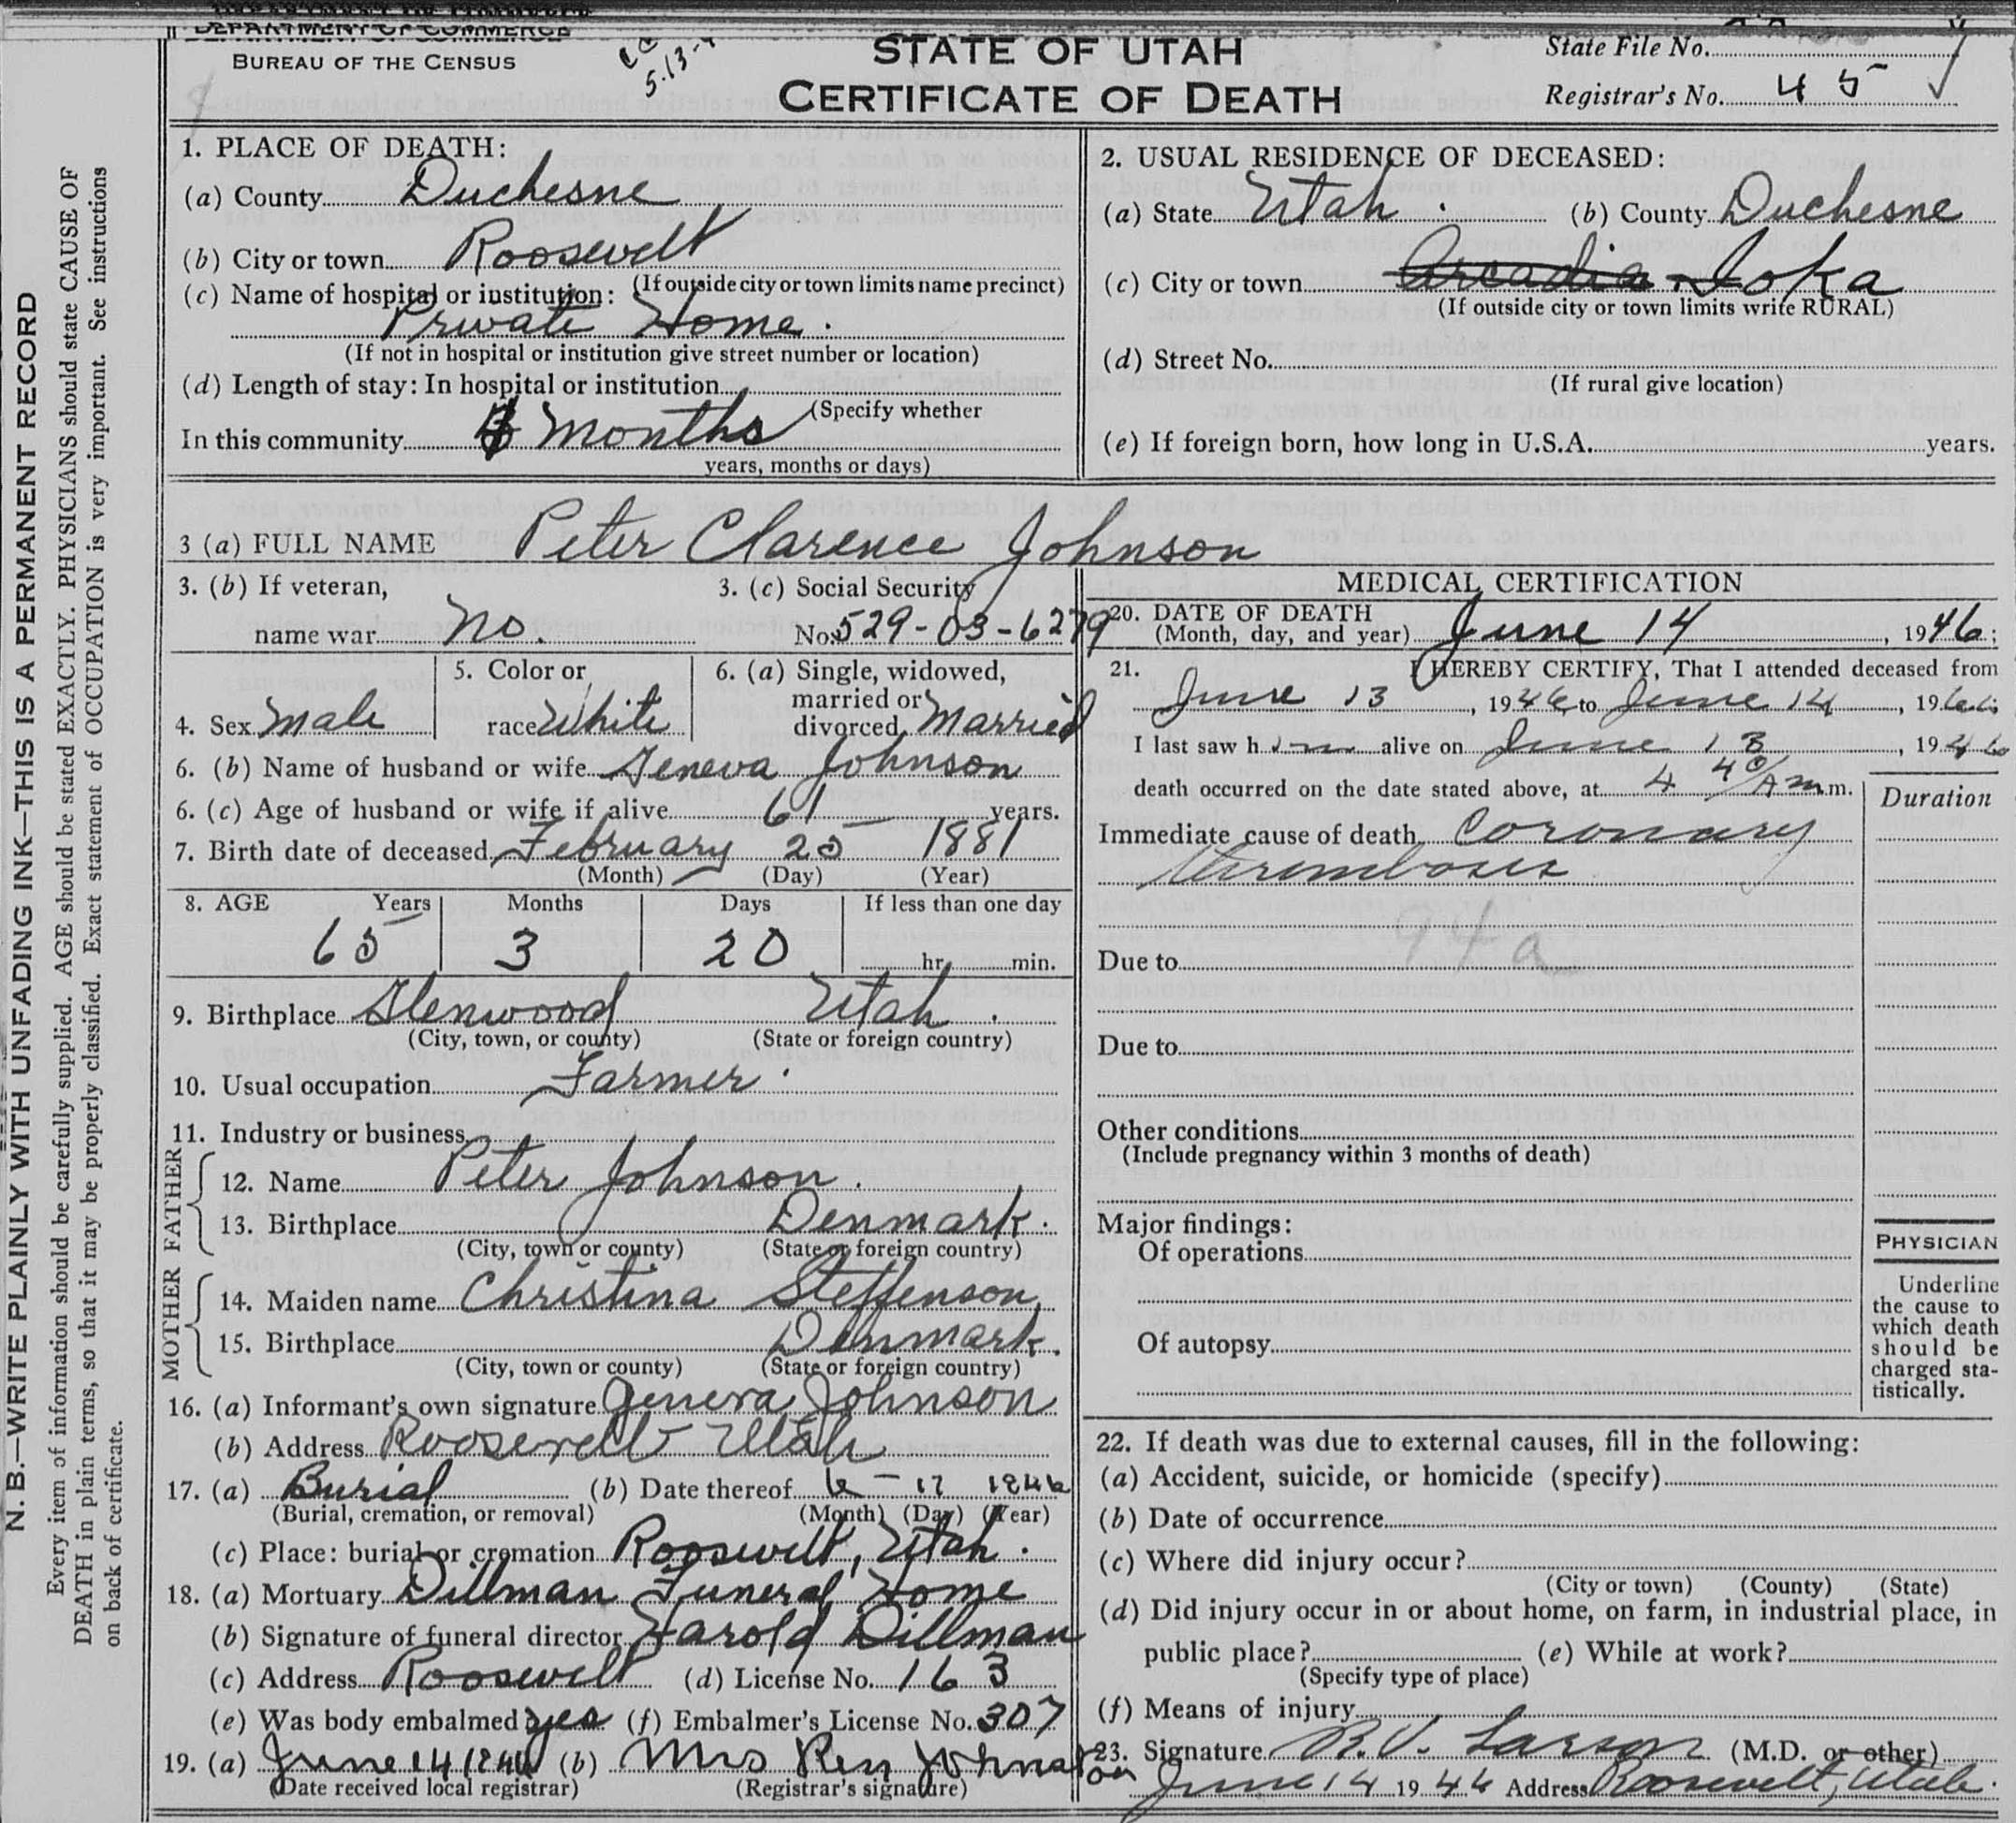 DEPARTMENT OF COMMERCE
BUREAU OF THE CENSUS
5-13-
STATE OF UTAH
CERTIFICATE OF DEATH
State File No.
Registrar's No. 45
N. B.—WRITE PLAINLY WITH UNFADING INK—THIS IS A PERMANENT RECORD
Every item of information should be carefully supplied. AGE should be stated EXACTLY. PHYSICIANS should state CAUSE OF
DEATH in plain terms, so that it may be properly classified. Exact statement of OCCUPATION is very important. See instructions
on back of certificate.
1. PLACE OF DEATH:
(a) County Duchesne
(b) City or town Roosevelt
(If outside city or town limits name precinct)
(c) Name of hospital or institution:
Private Home.
(If not in hospital or institution give street number or location)
(d) Length of stay: In hospital or institution
(Specify whether
In this community months
years, months or days)
2. USUAL RESIDENCE OF DECEASED:
(a) State Utah. (b) County Duchesne
(c) City or town Arcadia - Ioka
(If outside city or town limits write RURAL)
(d) Street No.
(If rural give location)
(e) If foreign born, how long in U.S.A. years.
3 (a) FULL NAME Peter Clarence Johnson
3. (b) If veteran, 3. (c) Social Security
name war no. No. 529-03-6279
4. Sex Male 5. Color or race White 6. (a) Single, widowed, married or divorced Married
6. (b) Name of husband or wife Geneva Johnson
6. (c) Age of husband or wife if alive 61 years.
7. Birth date of deceased February 25 1881
(Month) (Day) (Year)
8. AGE Years Months Days If less than one day
65 3 20 hr. min.
9. Birthplace Glenwood Utah.
(City, town, or county) (State or foreign country)
10. Usual occupation Farmer
11. Industry or business
FATHER
12. Name Peter Johnson.
13. Birthplace Denmark.
(City, town or county) (State or foreign country)
MOTHER
14. Maiden name Christina Steffenson
15. Birthplace Denmark.
(City, town or county) (State or foreign country)
16. (a) Informant's own signature Geneva Johnson
(b) Address Roosevelt Utah
17. (a) Burial (b) Date thereof 6 - 17 1946
(Burial, cremation, or removal) (Month) (Day) (Year)
(c) Place: burial or cremation Roosevelt, Utah.
18. (a) Mortuary Dillman Funeral Home
(b) Signature of funeral director Harold Dillman
(c) Address Roosevelt (d) License No. 163
(e) Was body embalmed yes (f) Embalmer's License No. 307
19. (a) June 14 1946 (b) Mrs Ren Johnston
(Date received local registrar) (Registrar's signature)
MEDICAL CERTIFICATION
20. DATE OF DEATH
(Month, day, and year) June 14, 1946;
21. I HEREBY CERTIFY, That I attended deceased from
June 13, 1946 to June 14, 1946;
I last saw him alive on June 13, 1946
death occurred on the date stated above, at 4 40/A m.m.
Duration
Immediate cause of death Coronary
thrombosis
94a
Due to
Due to
Other conditions
(Include pregnancy within 3 months of death)
Major findings:
Of operations
Of autopsy
PHYSICIAN
Underline
the cause to
which death
should be
charged sta-
tistically.
22. If death was due to external causes, fill in the following:
(a) Accident, suicide, or homicide (specify)
(b) Date of occurrence
(c) Where did injury occur?
(City or town) (County) (State)
(d) Did injury occur in or about home, on farm, in industrial place, in
public place? (e) While at work?
(Specify type of place)
(f) Means of injury
23. Signature R.V. Larson (M.D. or other)
June 14 1946 Address Roosevelt, Utah.